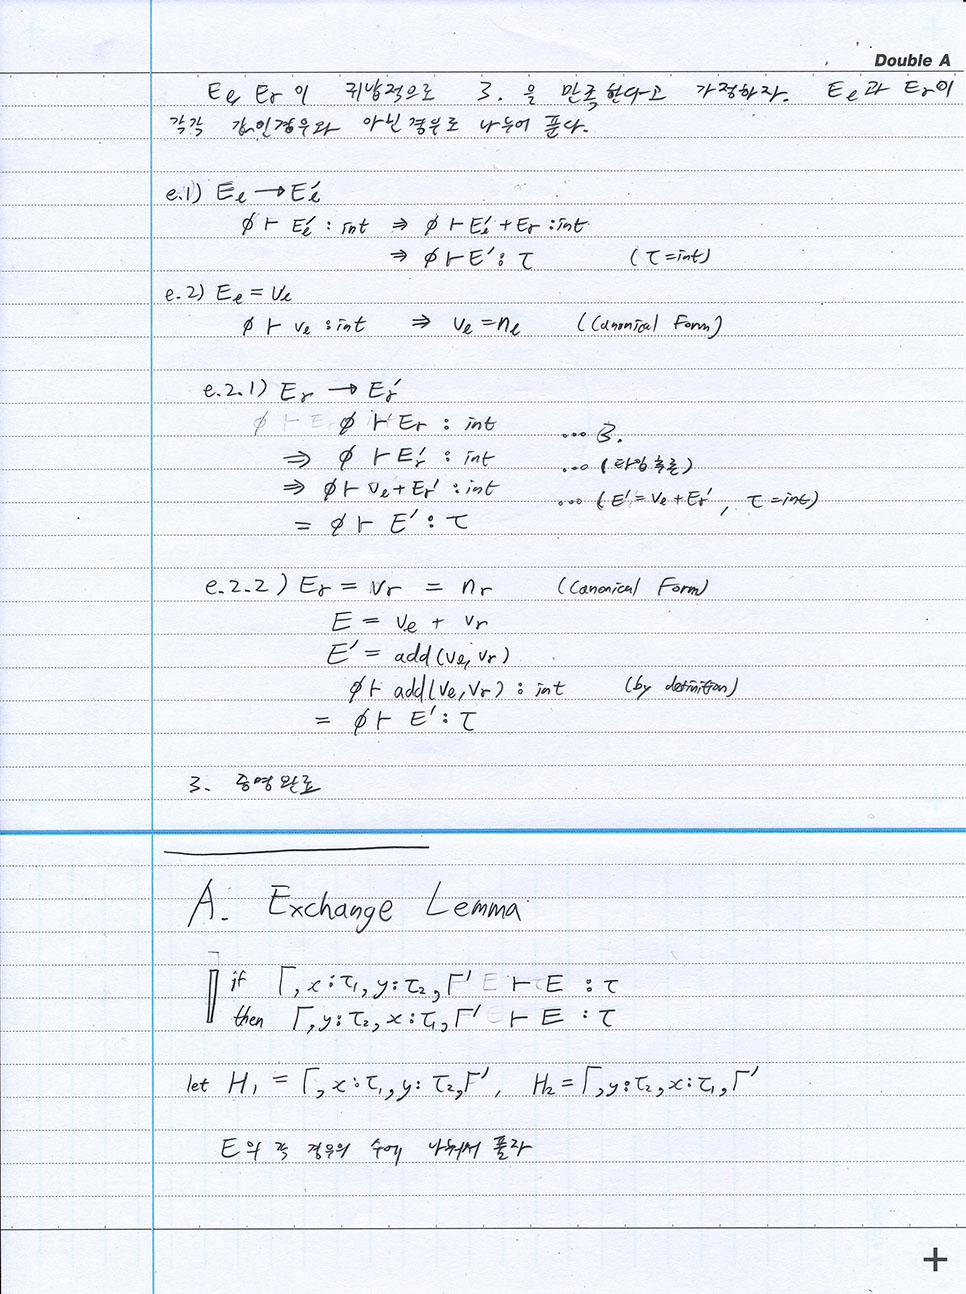 Double A
Eℓ Er이 귀납적으로 3. 을 만족한다고 가정하자. Eℓ과 Er이
각각 값인경우와 아닌경우로 나누어 푼다.
e.1) Eℓ → Eℓ'
∅ ⊢ Eℓ' : int ⇒ ∅ ⊢ Eℓ' + Er : int
⇒ ∅ ⊢ E' : τ (τ = int)
e.2) Eℓ = vℓ
∅ ⊢ vℓ : int ⇒ vℓ = nℓ (Canonical Form)
e.2.1) Er → Er'
∅ ⊢ Er : int ... 3.
⇒ ∅ ⊢ Er' : int ... (타입추론)
⇒ ∅ ⊢ vℓ + Er' : int ... (E' = vℓ + Er', τ = int)
= ∅ ⊢ E' : τ
e.2.2) Er = vr = nr (Canonical Form)
E = vℓ + vr
E' = add(vℓ, vr)
∅ ⊢ add(vℓ, vr) : int (by definition)
= ∅ ⊢ E' : τ
3. 증명완료
A. Exchange Lemma
if Γ, x:τ1, y:τ2, Γ' ⊢ E : τ
then Γ, y:τ2, x:τ1, Γ' ⊢ E : τ
let H1 = Γ, x:τ1, y:τ2, Γ', H2 = Γ, y:τ2, x:τ1, Γ'
E의 각 경우의 수에 나눠서 풀라